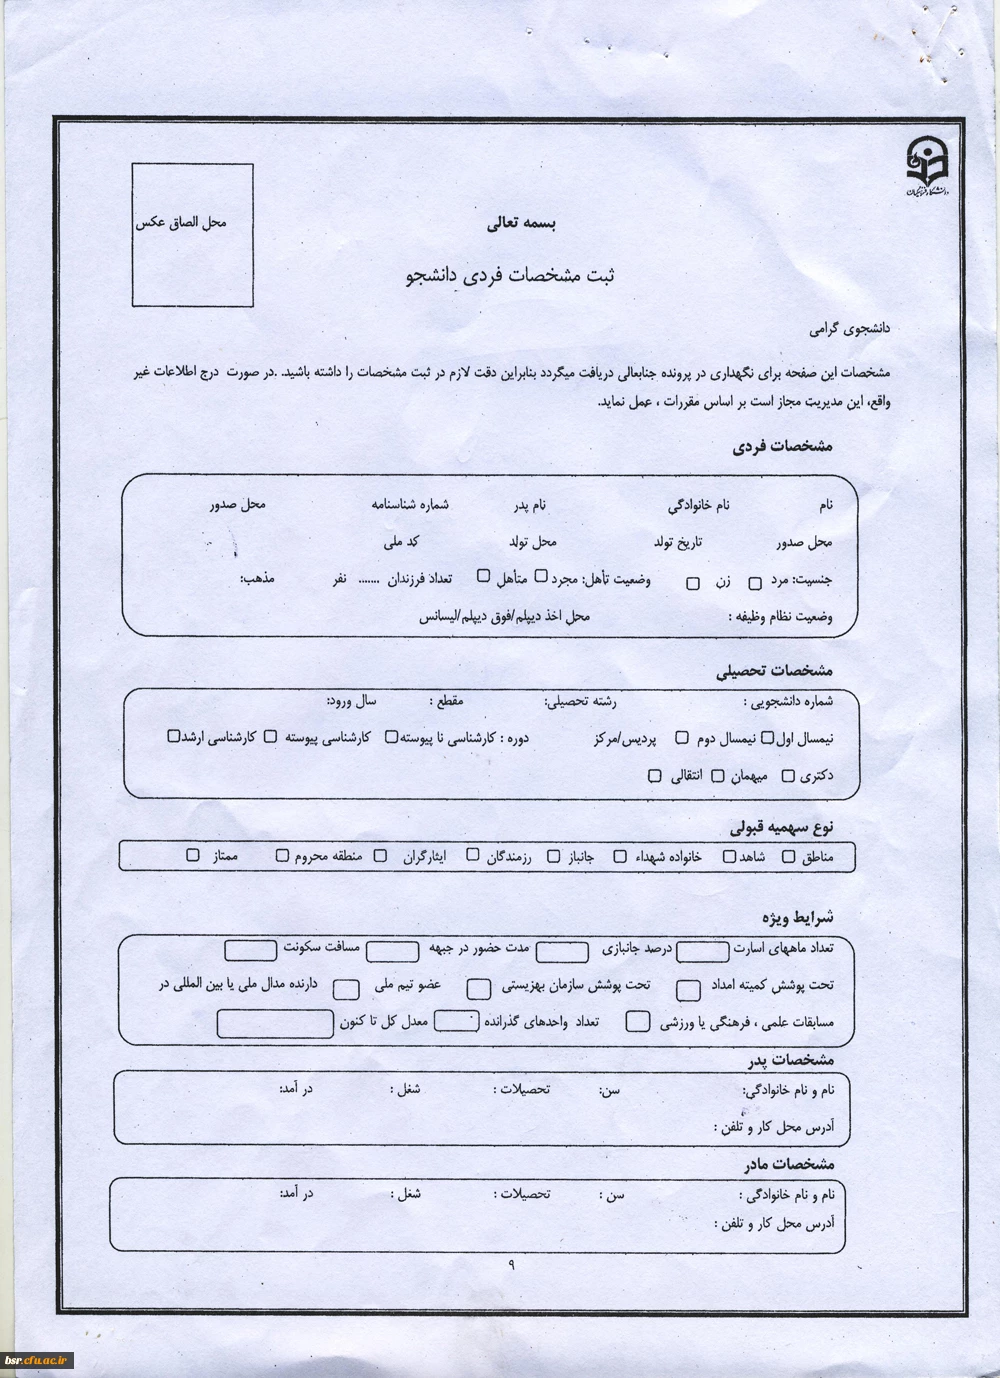 دانشگاه فرهنگیان
محل الصاق عکس
بسمه تعالی
ثبت مشخصات فردی دانشجو
دانشجوی گرامی
مشخصات این صفحه برای نگهداری در پرونده جنابعالی دریافت میگردد بنابراین دقت لازم در ثبت مشخصات را داشته باشید. .در صورت درج اطلاعات غیر
واقع، این مدیریت مجاز است بر اساس مقررات ، عمل نماید.
مشخصات فردی
نام نام خانوادگی نام پدر شماره شناسنامه محل صدور
محل صدور تاریخ تولد محل تولد کد ملی
جنسیت: مرد زن وضعیت تأهل: مجرد متأهل تعداد فرزندان ....... نفر مذهب:
وضعیت نظام وظیفه : محل اخذ دیپلم/فوق دیپلم/لیسانس
مشخصات تحصیلی
شماره دانشجویی : رشته تحصیلی: مقطع : سال ورود:
نیمسال اول نیمسال دوم پردیس/مرکز دوره : کارشناسی نا پیوسته کارشناسی پیوسته کارشناسی ارشد
دکتری میهمان انتقالی
نوع سهمیه قبولی
مناطق شاهد خانواده شهداء جانباز رزمندگان ایثارگران منطقه محروم ممتاز
شرایط ویژه
تعداد ماههای اسارت درصد جانبازی مدت حضور در جبهه مسافت سکونت
تحت پوشش کمیته امداد تحت پوشش سازمان بهزیستی عضو تیم ملی دارنده مدال ملی یا بین المللی در
مسابقات علمی ، فرهنگی یا ورزشی تعداد واحدهای گذرانده معدل کل تا کنون
مشخصات پدر
نام و نام خانوادگی: سن: تحصیلات : شغل : در آمد:
آدرس محل کار و تلفن :
مشخصات مادر
نام و نام خانوادگی : سن : تحصیلات : شغل : در آمد:
آدرس محل کار و تلفن :
۹
bsr.cfu.ac.ir